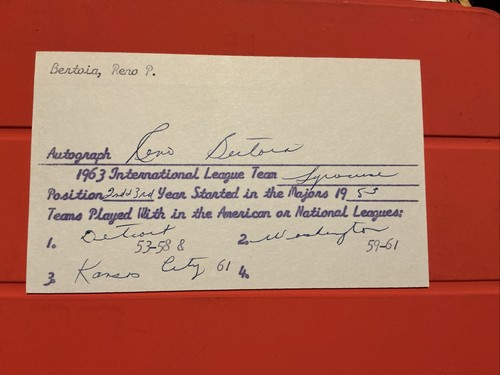 Bertoia, Reno P.
Autograph Reno Bertoia
1963 International League Team Syracuse
Position 2nd & 3rd Year Started in the Majors 19 53
Teams Played With in the American or National Leagues:
1. Detroit 2. Washington
53-58 & 59-61
3. Kansas City 61 4.